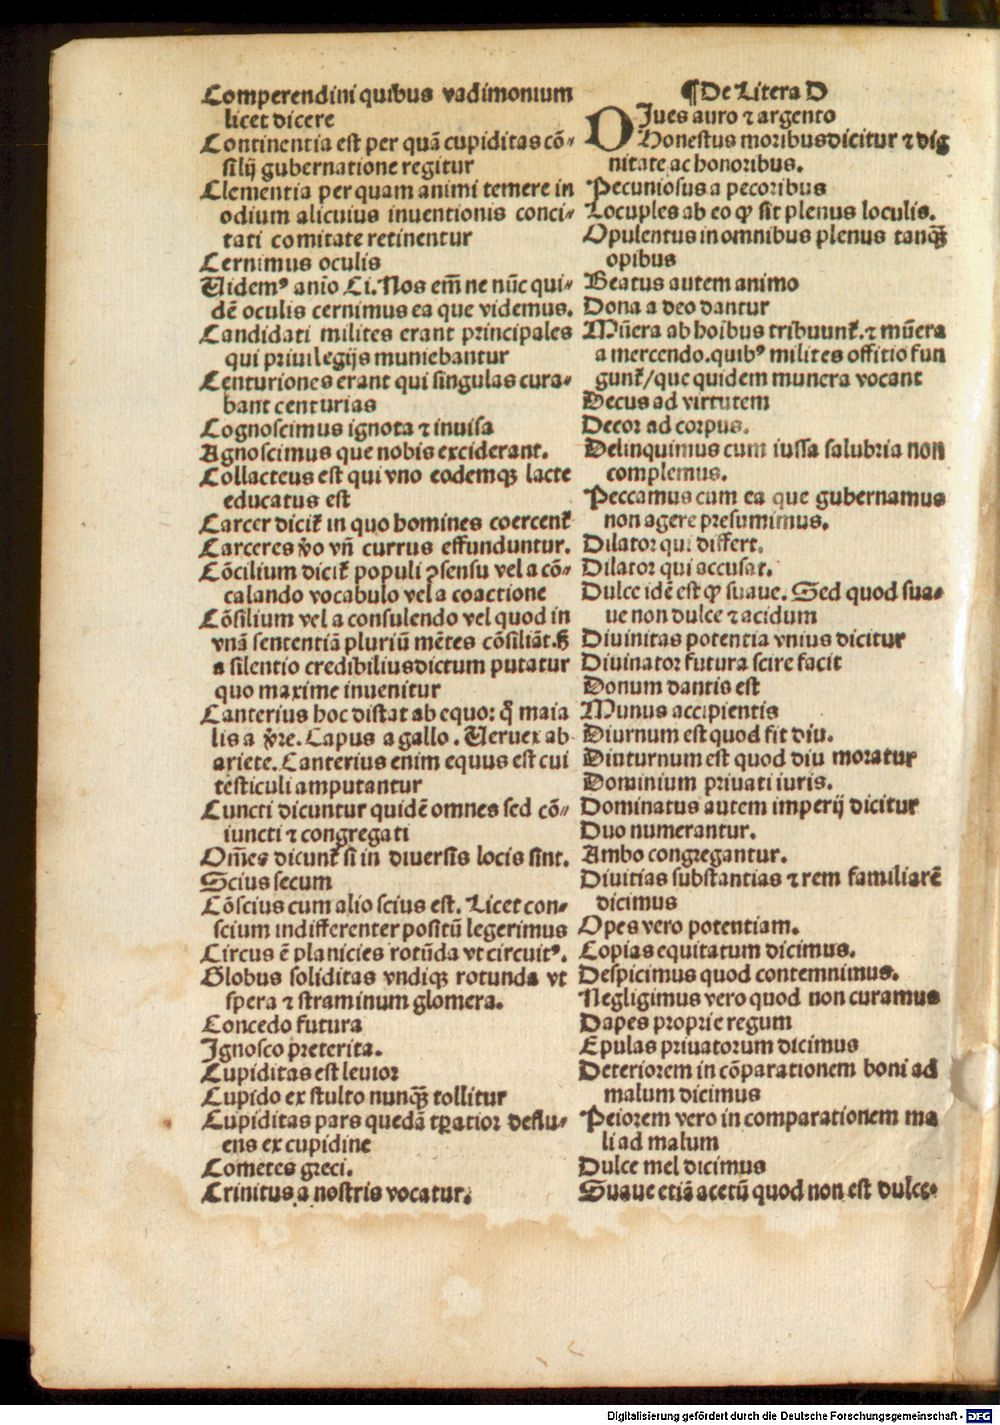 Comperendini quibus vadimonium
licet dicere
Continentia est per quã cupiditas cõ⸗
silij gubernatione regitur
Clementia per quam animi temere in
odium alicuius inuentionis conci⸗
tati comitate retinentur
Cernimus oculis
Uidemꝰ anĩo Ci. Nos em̃ ne nũc qui⸗
dẽ oculis cernimus ea que videmus.
Candidati milites erant principales
qui priuilegijs muniebantur
Centuriones erant qui singulas cura⸗
bant centurias
Cognoscimus ignota ⁊ inuisa
Agnoscimus que nobis exciderant.
Collacteus est qui vno eodemqꝫ lacte
educatus est
Carcer dicit᷑ in quo homines coercent᷑
Carceres ṽo vñ currus effunduntur.
Cõcilium dicit᷑ populi ꝯsensu vel a cõ⸗
calando vocabulo vel a coactione
Cõsilium vel a consulendo vel quod in
vnã sententiã pluriũ mẽtes cõsiliãt. H̃
a silentio credibilius dictum putatur
quo maxime inuenitur
Canterius hoc distat ab equo: q̃ maia
lis a ṽre. Capus a gallo. Ueruex ab
ariete. Canterius enim equus est cui
testiculi amputantur
Cuncti dicuntur quidẽ omnes sed cõ⸗
iuncti ⁊ congregati
Om̃es dicunt᷑ si in diuersis locis sint.
Scius secum
Cõscius cum alio scius est. Licet con⸗
scium indifferenter positũ legerimus
Circus ẽ planicies rotũda vt circuitꝰ.
Globus soliditas vndiqꝫ rotunda vt
spera ⁊ straminum glomera.
Concedo futura
Ignosco preterita.
Cupiditas est leuior
Cupido ex stulto nunqꝫ̃ tollitur
Cupiditas pars quedã tꝑatior deflu⸗
ens ex cupidine
Cometes greci.
Crinitus a nostris vocatur.
¶De Litera D
DIues auro ⁊ argento
Honestus moribus dicitur ⁊ dig
nitate ac honoribus.
Pecuniosus a pecoribus
Locuples ab eo ꝙ sit plenus loculis.
Opulentus in omnibus plenus tanqꝫ̃
opibus
Beatus autem animo
Dona a deo dantur
Mũera ab hoibus tribuunt᷑. ⁊ mũera
a mercendo. quibꝰ milites offitio fun
gunt᷑/que quidem munera vocant
Decus ad virtutem
Decor ad corpus.
Delinquimus cum iussa salubria non
complemus.
Peccamus cum ea que gubernamus
non agere presumimus.
Dilator qui differt.
Dilator qui accusat.
Dulce idẽ est ꝙ suaue. Sed quod sua⸗
ue non dulce ⁊ acidum
Diuinitas potentia vnius dicitur
Diuinator futura scire facit
Donum dantis est
Munus accipientis
Diurnum est quod fit diu.
Diuturnum est quod diu moratur
Dominium priuati iuris.
Dominatus autem imperij dicitur
Duo numerantur.
Ambo congregantur.
Diuitias substantias ⁊ rem familiarẽ
dicimus
Opes vero potentiam.
Copias equitatum dicimus.
Despicimus quod contemnimus.
Negligimus vero quod non curamus
Dapes proprie regum
Epulas priuatorum dicimus
Deteriorem in cõparationem boni ad
malum dicimus
Peiorem vero in comparationem ma
li ad malum
Dulce mel dicimus
Suaue etiã acetũ quod non est dulce.
Digitalisierung gefördert durch die Deutsche Forschungsgemeinschaft - DFG